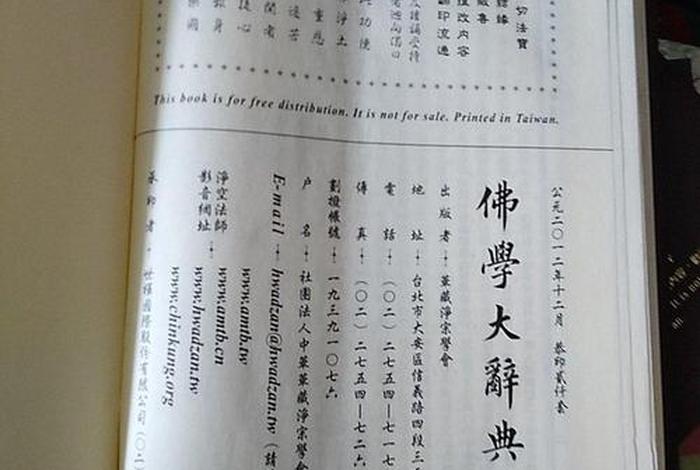 切法寶
改內容
翻印流通
This book is for free distribution. It is not for sale. Printed in Taiwan.
公元二〇一二年十二月 恭印貳仟套
佛學大辭典
出版者：華藏淨宗學會
地 址：台北市大安區信義路四段三
電 話：（〇二）二七五四—七一七
傳 真：（〇二）二七五四—七二六
劃撥帳號：一九三九一〇七六
戶 名：社團法人中華華藏淨宗學會
E-mail：hwadzan@hwadzan.tw（請
淨空法師
影音網址：
www.amtb.tw
www.amtb.cn
www.hwadzan.tw
www.chinkung.org
承印者：世樺國際股份有限公司（〇二